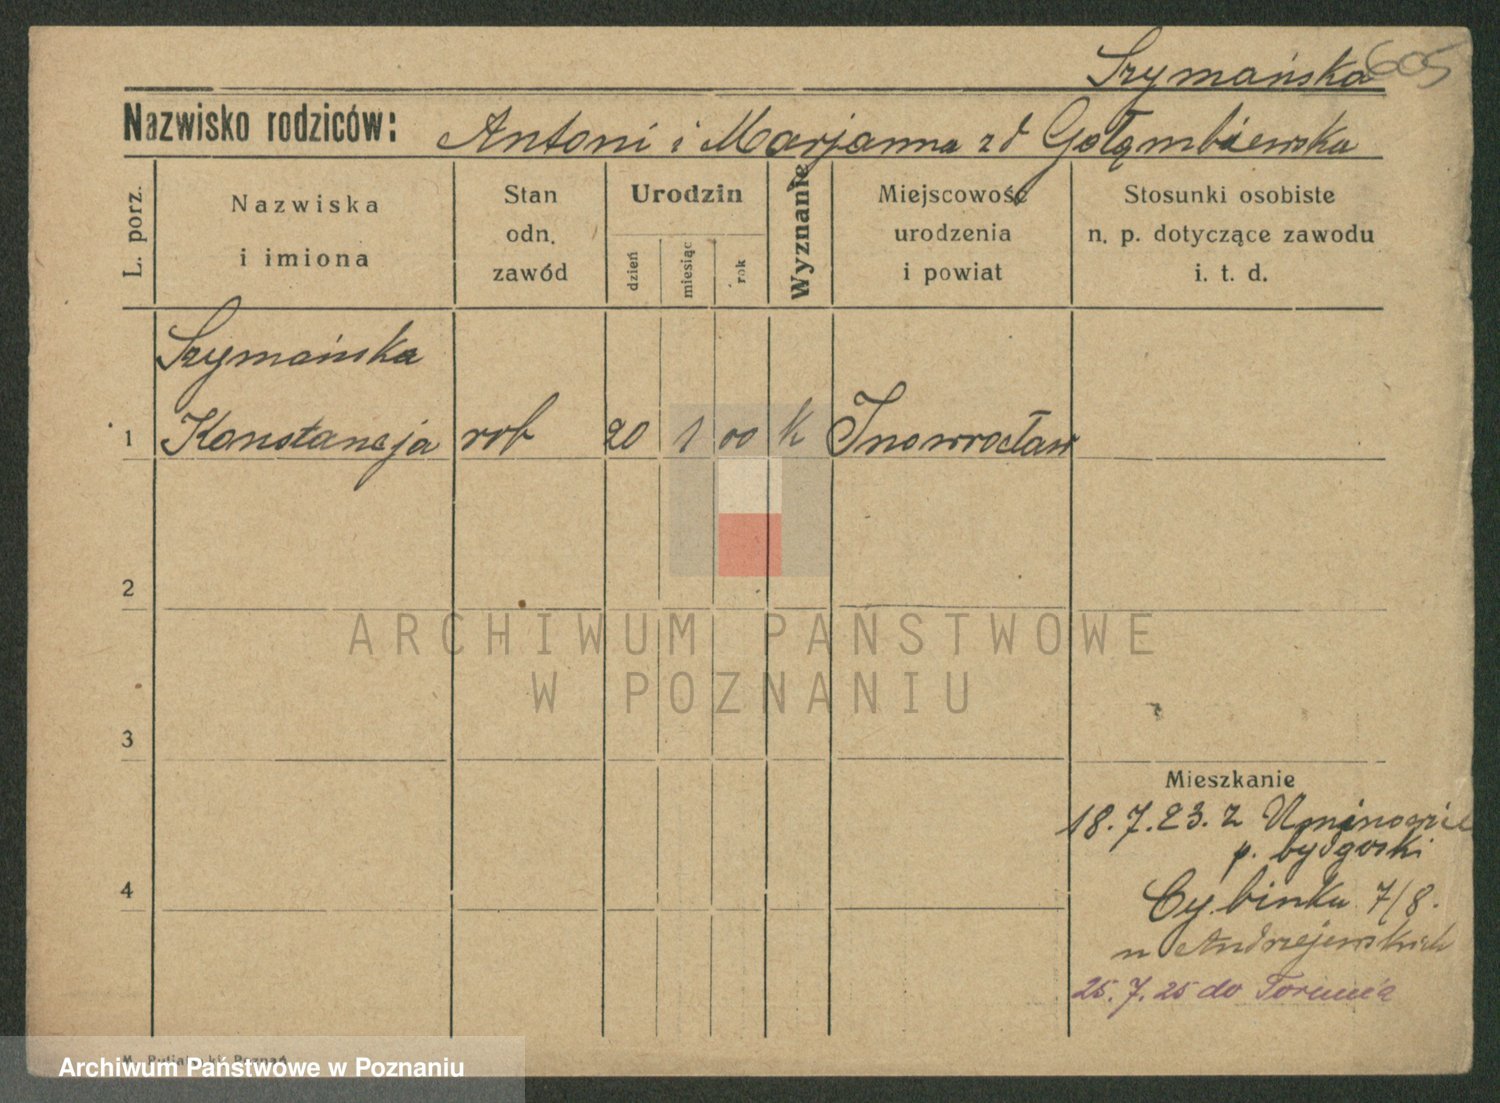 Szymańska 605
Nazwisko rodziców: Antoni i Marjanna zd Gołąmbiewska
L. porz.
Nazwiska
i imiona
Stan
odn.
zawód
Urodzin
dzień
miesiąc
rok
Wyznanie
Miejscowość
urodzenia
i powiat
Stosunki osobiste
n. p. dotyczące zawodu
i. t. d.
Szymańska
1 Konstancja rob 20 1 00 k Inowrocław
2
ARCHIWUM PAŃSTWOWE
W POZNANIU
3
Mieszkanie
18.7.23. z
p. bydgoski
4
Cybinku 7/8.
u Andrzejewskich
25.7.25 do Torunia
M. Poznań
Archiwum Państwowe w Poznaniu